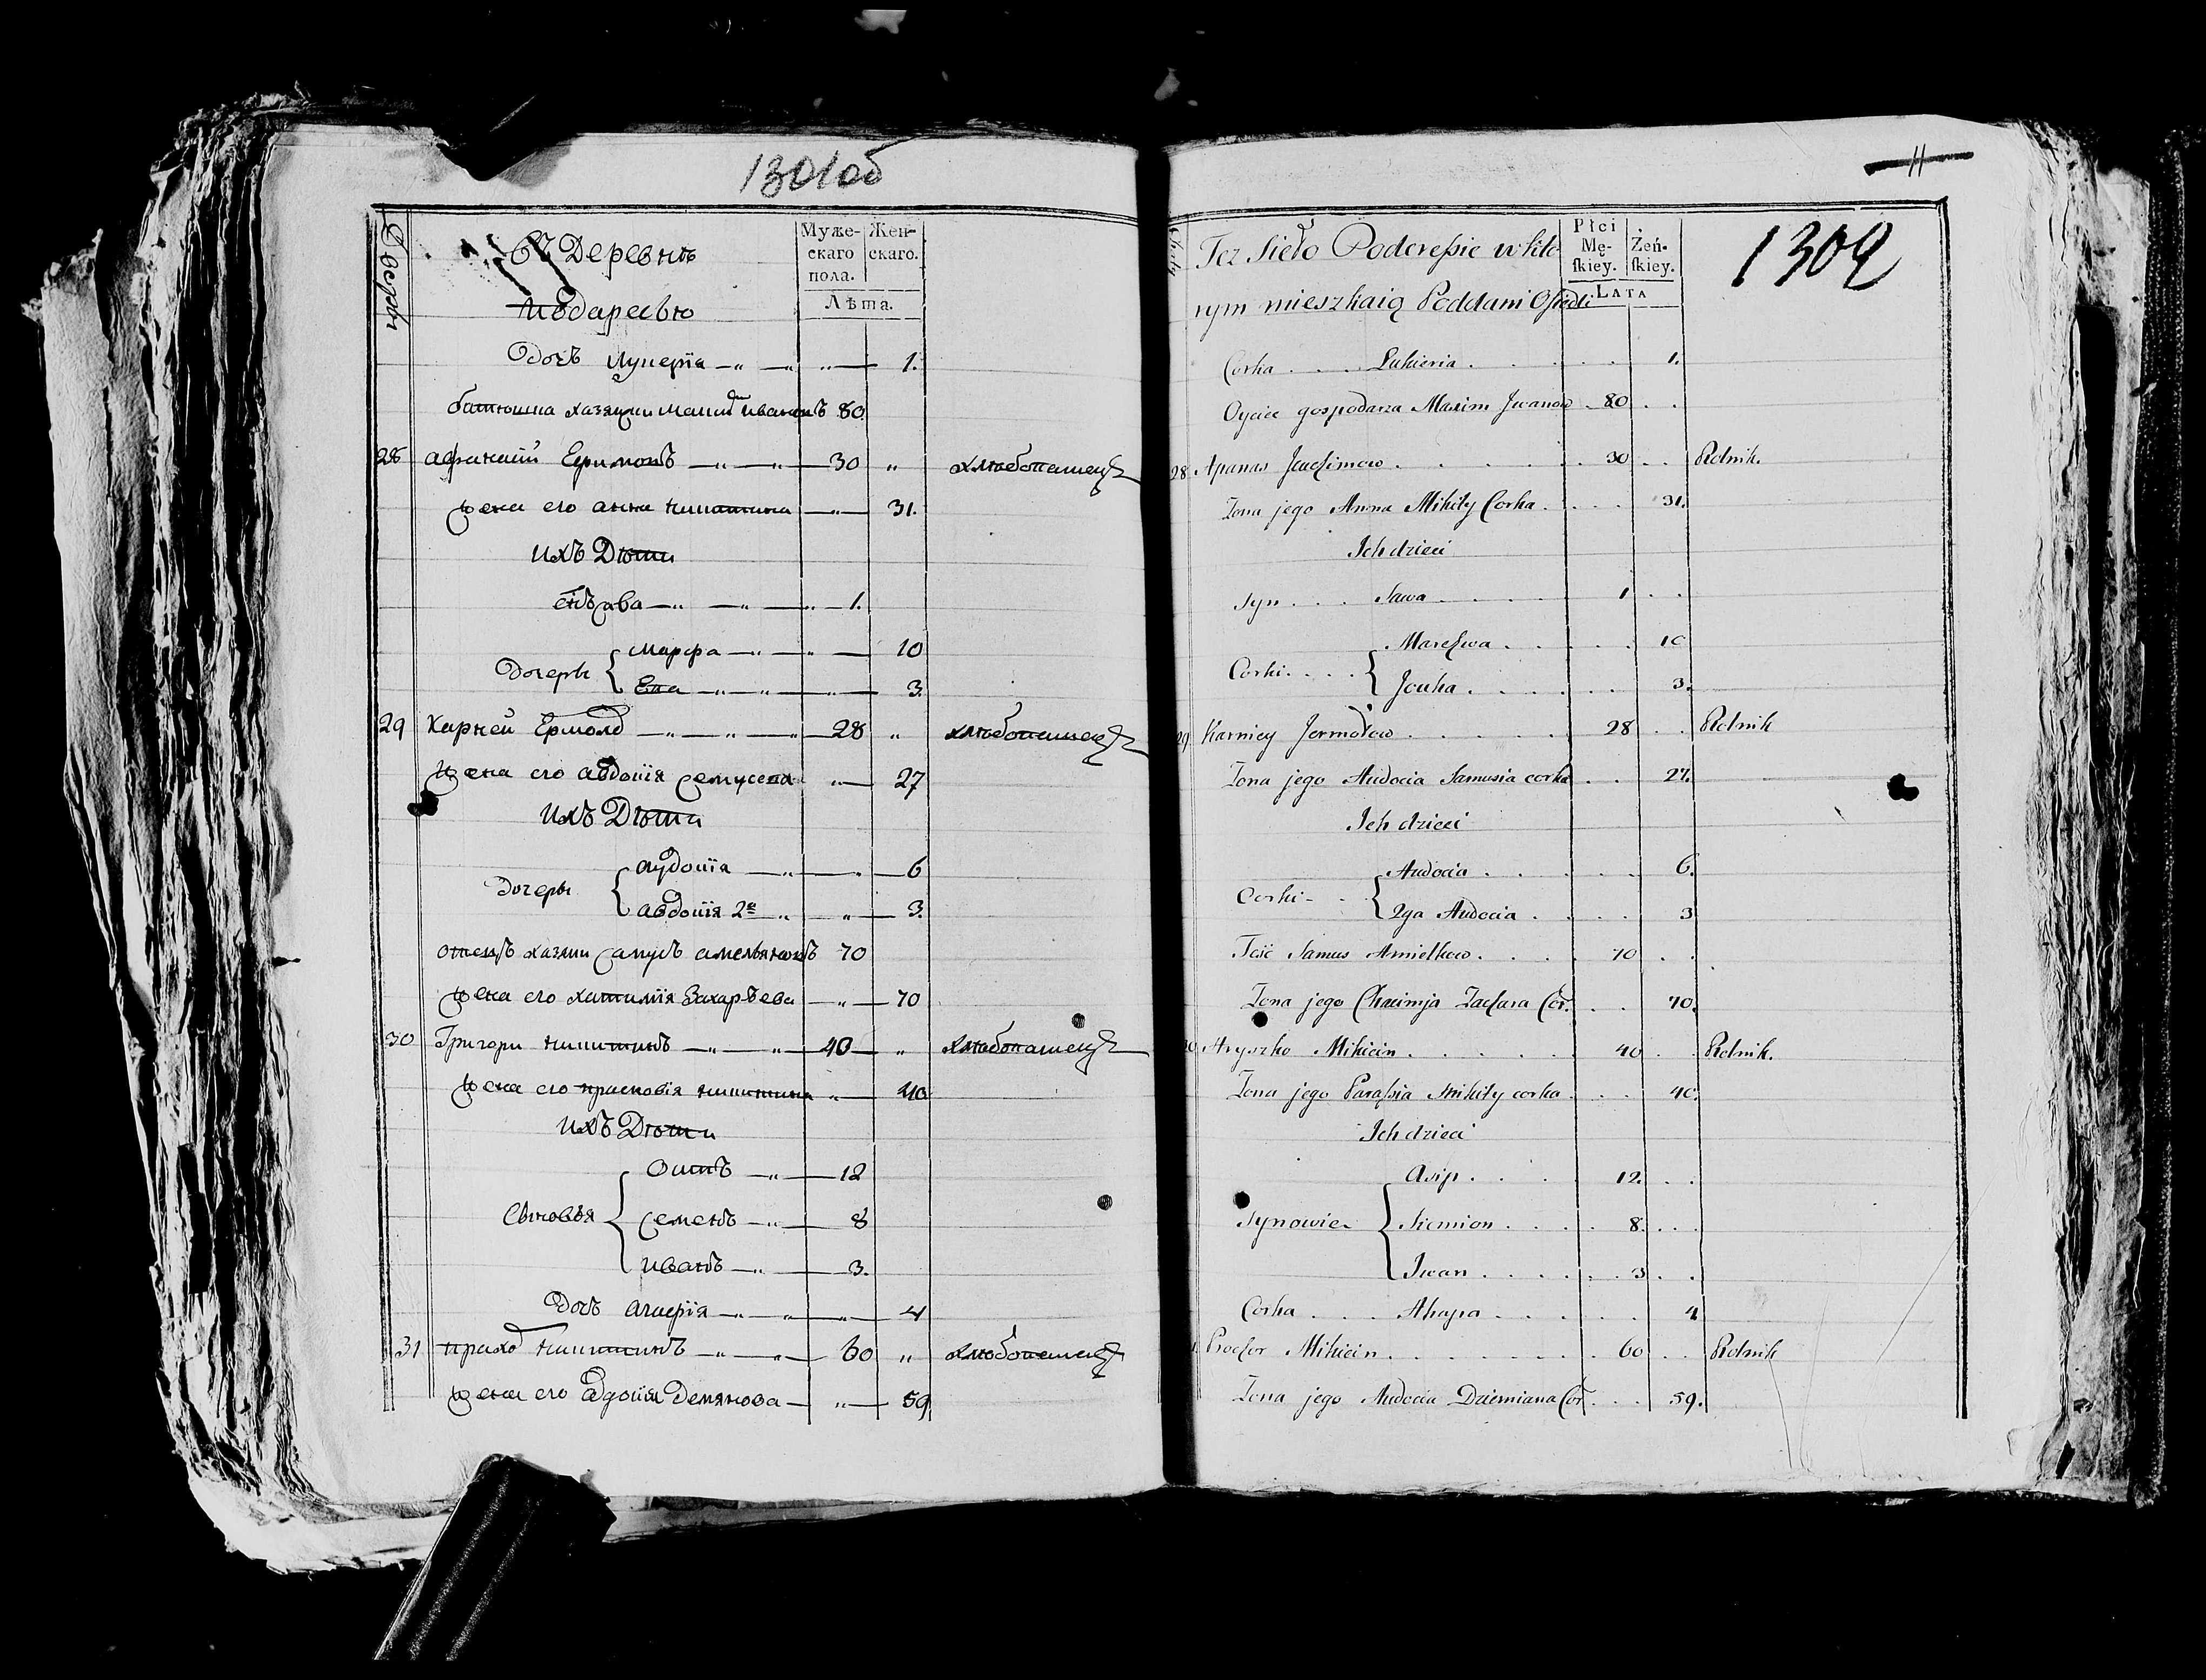 1301об
Въ Деревнѣ
Подаресью
Муже-
скаго
пола.
Жен-
скаго.
Лѣта.
Дочъ Лукерія 1.
батюшка хазяина Маѯимъ Ивановъ 80
28 Афанасій Ефимовъ 30 " хлѣбопашецъ
Жена его Анна Никитина 31.
Ихъ Дѣти
Сынъ Сава 1.
Дочеры Марфа 10
Ева 3.
29 Карней Ермолов 28 " хлѣбопашецъ
Жена его Авдотія Семусева 27
Ихъ Дѣти
Дочеры Аудотія 6
Авдотія 2я 3.
отецъ хазяи Самусъ Амельяновъ 70
Жена его Хатимія Захарьева 70
30 Григори Никитинъ 40 " хлѣбопашецъ
Жена его Прасковія Никитина 40
Ихъ Дѣти
Сыновья Осипъ 12
Семенъ 8
Иванъ 3.
Дочъ Агаерія 4
31 Прахо Никитинъ 60 " хлѣбопашецъ
Жена его Авдотія Демянова 59
11
1302
Tez Sioło Podereſsie w któ-
rym mieszkaią Poddani Osiedli
Płci
Mę-
ſkiey.
Żeń-
ſkiey.
LATA
Corka . . . . Łukieria . . . 1.
Oyciec gospodarza Maxim Jwanow 80 . .
28 Apanas Jachimow . . . 30 . . Rolnik.
Zona jego Anna Mikity Corka . . . 31.
Ich dzieci
Syn . . . Sawa . . . 1 . .
Corki . . . Mareſwa . . . 10
Jouka . . . 3.
29 Karniey Jermołow . . . 28 . . Rolnik
Zona jego Audocia Samusia corka . . 27.
Ich dzieci
Corki - . Audocia . . . 6.
2ga Audocia . . . 3
Teść Samus Amielkow . . . 70 . .
Zona jego Chacimja Zachara Cor. . . 70.
30 Hryszko Mikicin . . . 40 . . Rolnik.
Zona jego Paraſsia Mikity corka . . . 40.
Ich dzieci
Synowie Asip . . . 12. . .
Siemion . . . 8. . .
Jwan . . . 3 . .
Corka . . . Ahapa . . . 4
Prochor Mikicin . . . 60 . . Rolnik
Zona jego Audocia Dziemiana Cor . . . 59.